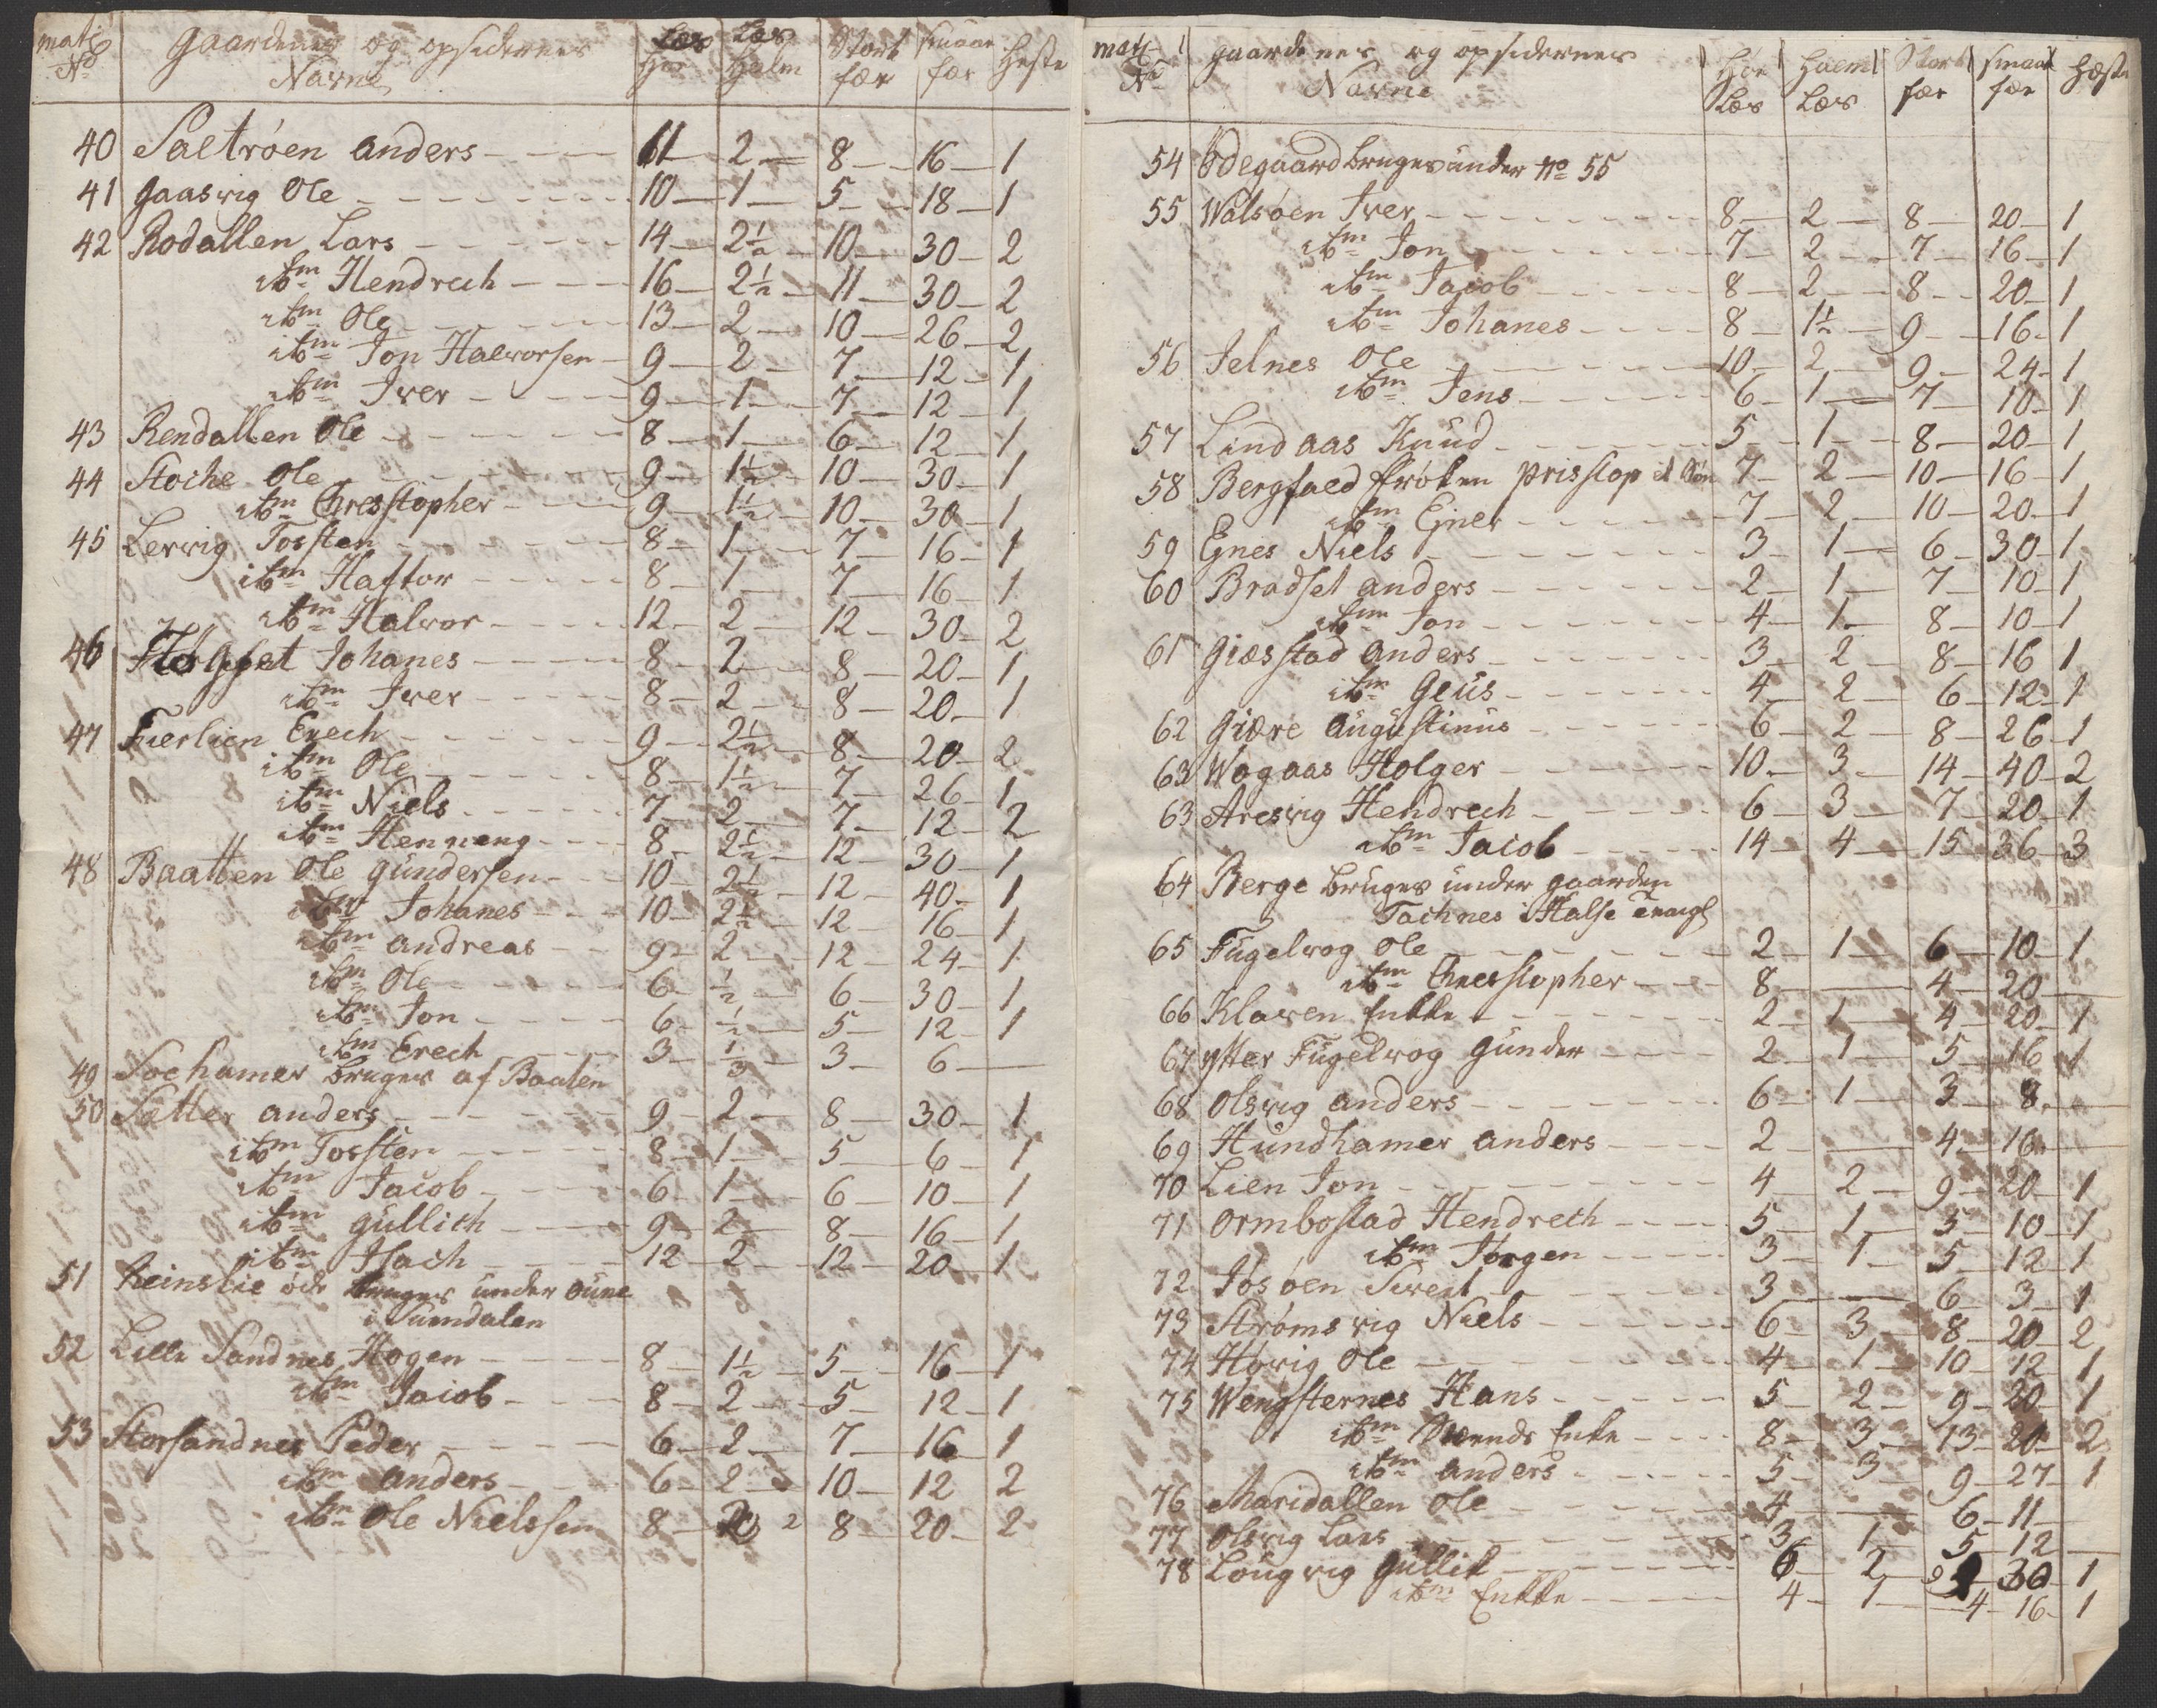 matr No Gaardenes og opsidernes Navne Læs Høe Læs Halm Stort fæe smaae fæe Heste
40 Saltrøen anders 11 2 8 16 1
41 gaasvig Ole 10 1 5 18 1
42 Rodallen Lars 14 2½ 10 30 2
itm Hendrech 16 2½ 11 30 2
itm Ole 13 2 10 26 2
itm Jon Halvorsen 9 2 7 12 1
itm Iver 9 1 7 12 1
43 Rendallen Ole 8 1 6 12 1
44 Stoche Ole 9 1½ 10 30 1
itm Chresstopher 9 1½ 10 30 1
45 Lervig Tossten 8 1 7 16 1
itm Haftor 8 1 7 16 1
itm Halvor 12 2 12 30 2
46 Johanes 8 2 8 20 1
itm Iver 8 2 8 20 1
47 Fuerlien Erech 9 2½ 8 20 2
itm Ole 8 1½ 7 26 1
itm Niels 7 2 7 12 2
itm Henneng 8 2½ 12 30 1
48 Baatten Ole gundersen 10 2½ 12 40 1
itm Johanes 10 2½ 12 16 1
itm andreas 9 2 12 24 1
itm Ole 6 ½ 6 30 1
itm Jon 6 ½ 5 12 1
itm Erech 3 ⅓ 3 6
49 Sochamer bruges af Baaten
50 Sætter anders 9 2 8 30 1
itm Tossten 8 1 5 6 1
itm Jacob 6 1 6 10 1
itm gullich 9 2 8 16 1
itm Isach 12 2 12 20 1
51 Reinslie øde bruges under oune
i Surndalen
52 Lille Sandnes Hogen 8 1½ 5 16 1
itm Jacob 8 2 5 12 1
53 Storsandnes Peder 6 2 7 16 1
itm anders 6 2 10 12 2
itm Ole Nielssen 8 2 8 20 2
matr No gaardenes og opsidernes Navne Høe Læs Halm Læs Stort fæe smaae fæe Hæste
54 Ødegaard bruges under No 55
55 Walsøen Iver 8 2 8 20 1
itm Jon 7 2 7 16 1
itm Jacob 8 2 8 20 1
itm Johanes 8 1½ 9 16 1
56 Jelnes Ole 10 2 9 24 1
itm Jens 6 1 7 10 1
57 Lindaas Knud 5 1 8 20 1
58 Bergfald frøken 7 2 10 16 1
itm Ejner 7 2 10 20 1
59 Egnes Niels 3 1 6 30 1
60 Bradset anders 2 1 7 10 1
itm Jon 4 1 8 10 1
61 Giæsstad anders 3 2 8 16 1
itm Geüs 4 2 6 12 1
62 Giære augustinus 6 2 8 26 1
63 Wogaas Holger 10 3 14 40 2
63 Aresvig Hendrech 6 3 7 20 1
itm Jacob 14 4 15 36 3
64 Berge bruges under gaarden
Tachnes i Halse
65 Fugelvog Ole 2 1 6 10 1
itm Chresstopher 8 4 20
66 Klaven Enkke 2 1 4 20 1
67 ytter Fugelvog gunder 2 1 5 16 1
68 Olsvig anders 6 1 3 8
69 Hundhamer anders 2 4 16
70 Lien Jon 4 2 9 20 1
71 Ormbostad Hendrech 5 1 5 10 1
itm Jørgen 3 1 5 12 1
72 Jøsøen Swend 3 6 3 1
73 Strømsvig Niels 6 3 8 20 2
74 Høvig Ole 4 1 10 12 1
75 Wengsternes Hans 5 2 9 20 1
itm Swends Enke 8 3 13 20 2
itm anders 5 3 9 27 1
76 Maridallen Ole 4 6 11
77 Olsvig Lars 3 1 5 12
78 Lougvig gullik 6 2 9 30 1
itm Enkke 4 1 4 16 1